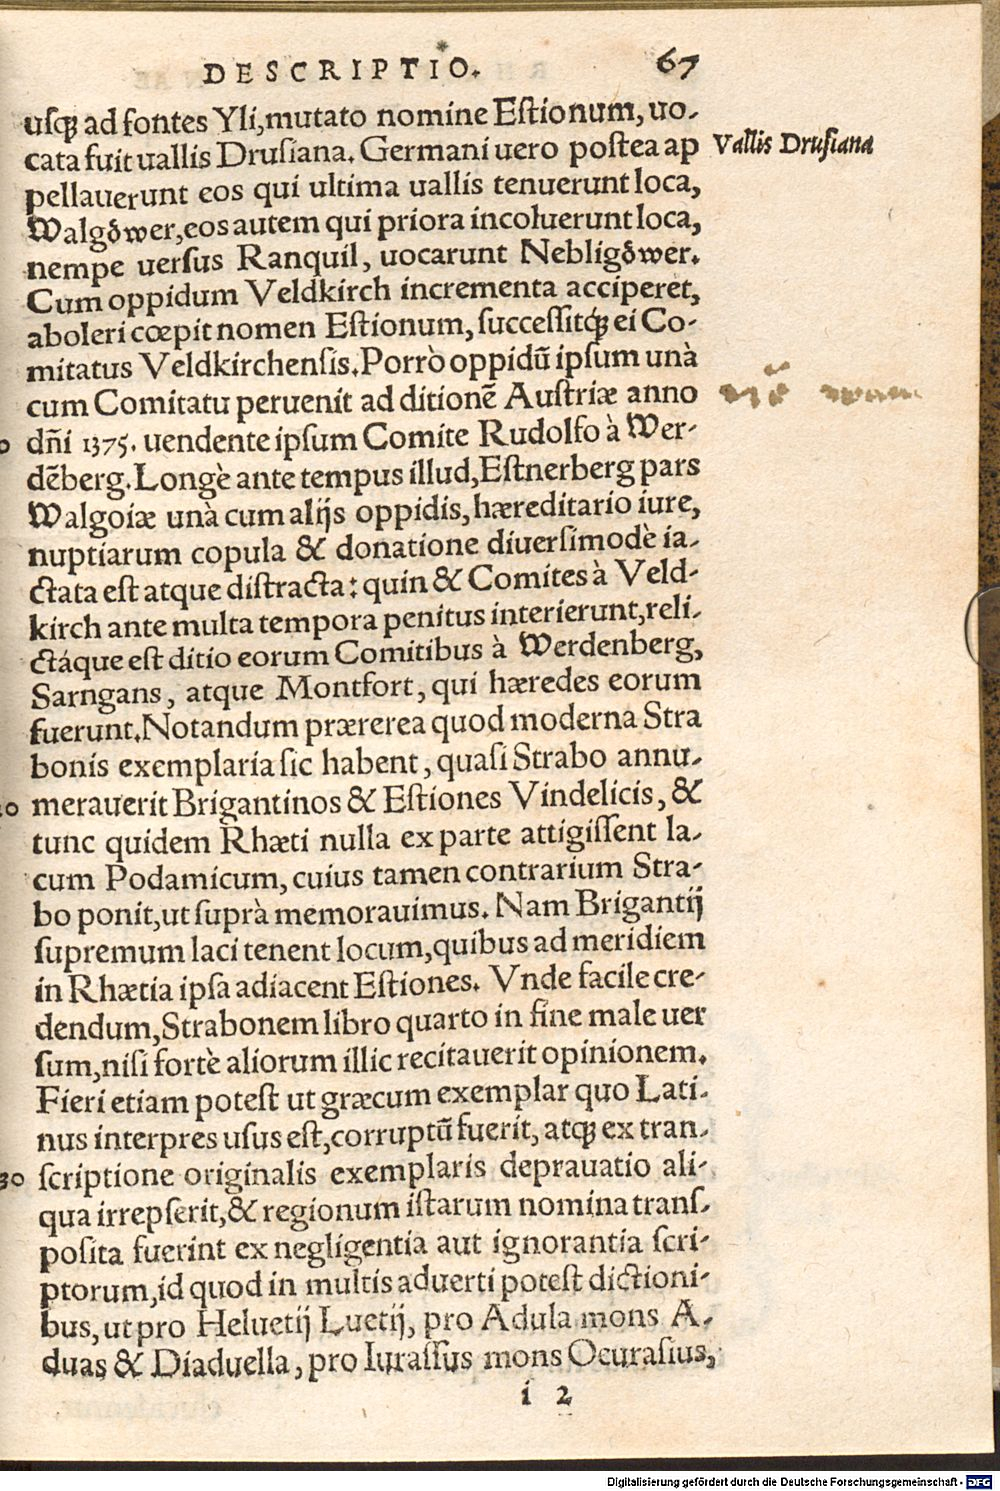 DESCRIPTIO. 67
uſqꝫ ad fontes Yli, mutato nomine Eſtionum, uo-
cata fuit uallis Druſiana. Germani uero poſtea ap
Vallis Druſiana
pellauerunt eos qui ultima uallis tenuerunt loca,
Walgöwer, eos autem qui priora incoluerunt loca,
nempe uerſus Ranquil, uocarunt Nebligöwer.
Cum oppidum Veldkirch incrementa acciperet,
aboleri cœpit nomen Eſtionum, ſucceſſitqꝫ́ ei Co-
mitatus Veldkirchenſis. Porrò oppidũ ipſum unà
cum Comitatu peruenit ad ditionẽ Auſtriæ anno
dñi 1375. uendente ipſum Comite Rudolfo à Wer-
dẽberg. Longè ante tempus illud, Eſtnerberg pars
Walgoiæ unà cum alijs oppidis, hæreditario iure,
nuptiarum copula & donatione diuerſimodè ia-
ctata eſt atque diſtracta: quin & Comites à Veld-
kirch ante multa tempora penitus interierunt, reli-
ctáque eſt ditio eorum Comitibus à Werdenberg,
Sarngans, atque Montfort, qui hæredes eorum
fuerunt. Notandum prærerea quod moderna Stra
bonis exemplaria ſic habent, quaſi Strabo annu-
20 merauerit Brigantinos & Eſtiones Vindelicis, &
tunc quidem Rhæti nulla ex parte attigiſſent la-
cum Podamicum, cuius tamen contrarium Stra-
bo ponit, ut ſuprà memorauimus. Nam Brigantij
ſupremum laci tenent locum, quibus ad meridiem
in Rhætia ipſa adiacent Eſtiones. Vnde facile cre-
dendum, Strabonem libro quarto in fine male uer
ſum, niſi fortè aliorum illic recitauerit opinionem.
Fieri etiam poteſt ut græcum exemplar quo Lati-
nus interpres uſus eſt, corruptũ fuerit, atqꝫ ex tran-
30 ſcriptione originalis exemplaris deprauatio ali-
qua irrepſerit, & regionum iſtarum nomina tranſ-
poſita fuerint ex negligentia aut ignorantia ſcri-
ptorum, id quod in multis aduerti poteſt dictioni-
bus, ut pro Heluetij Luetij, pro Adula mons A-
duas & Diaduella, pro Iuraſſus mons Ocuraſius,
i 2
Digitalisierung gefördert durch die Deutsche Forschungsgemeinschaft - DFG